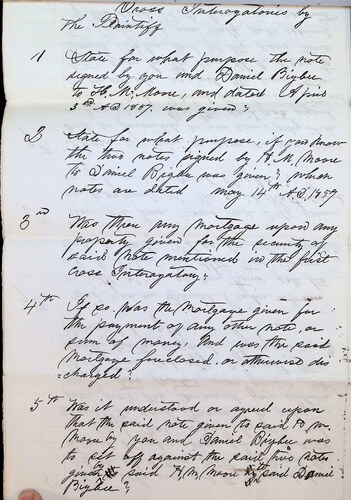 Cross Interogatories by
the Plaintiff
1 State for what purpose the note
signed by you and Daniel Bigbee
to H. M. Moore, and dated April
3rd A.D. 1857. was given?
2 State for what purpose, if you know
the two notes signed by H. M. Moore
to Daniel Bigbee was given? which
notes are dated may 14th A.D. 1857
3rd Was there any mortgage upon any
property given for the security of
said note mentioned in the first
Cross Interogatory?
4th If so was the mortgage given for
the payment of any other note, or
sum of money, and was the said
mortgage foreclosed, or otherwise dis
=charged?
5th Was it understood or agreed upon
that the said note given to said H. M.
Moore by you and Daniel Bigbee was
to set off against the said two notes
given said H. M. Moore to said Daniel
Bigbee?